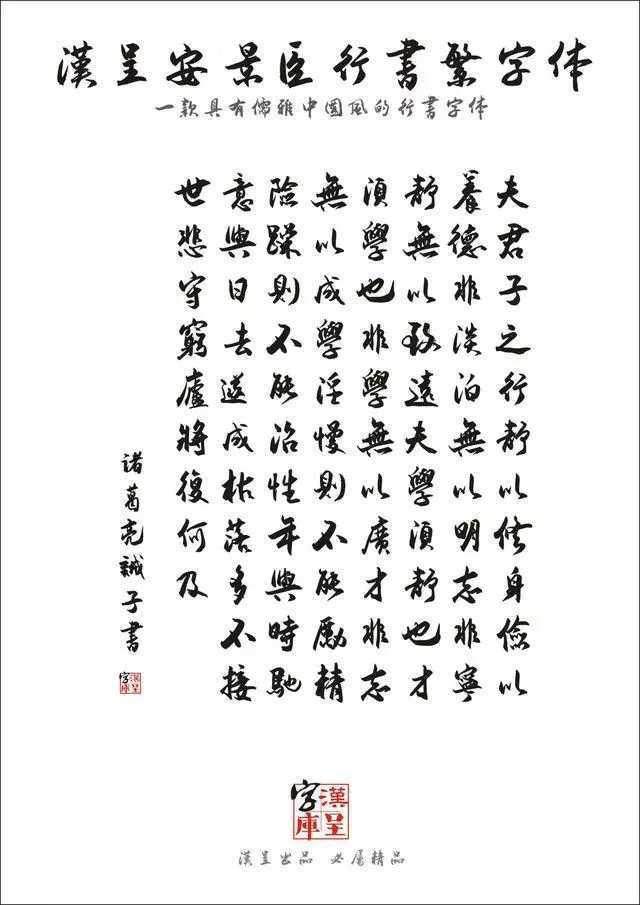 漢呈安景臣行書繁字体
一款具有儒雅中国风的行書字体
夫君子之行靜以修身儉以
養德非淡泊無以明志非寧
靜無以致遠夫學須靜也才
須學也非學無以廣才非志
無以成學淫慢則不能勵精
險躁則不能冶性年與時馳
意與日去遂成枯落多不接
世悲守窮廬將復何及
諸葛亮誡子書
漢呈字庫
漢呈字庫
漢呈出品 必属精品